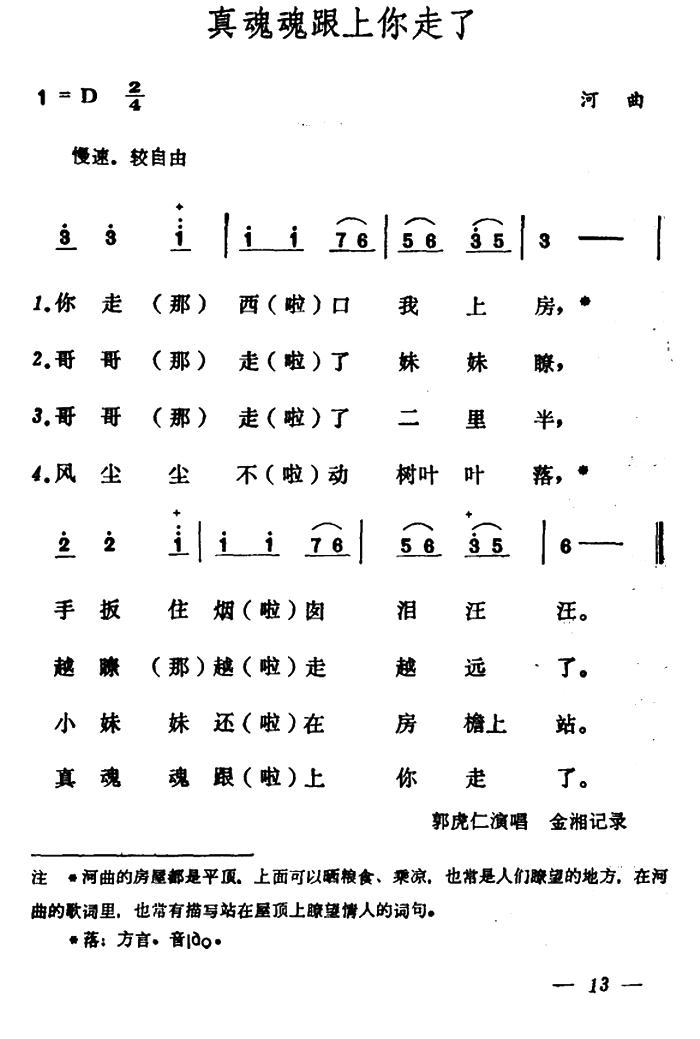 真魂魂跟上你走了
1 = D 2/4 河 曲
慢速。较自由
3̇ 3̇ 1̇ | 1̇ 1̇ 7 6 | 5 6 3̇ 5 | 3 — |
1.你 走 （那） 西（啦）口 我 上 房，*
2.哥 哥 （那） 走（啦）了 妹 妹 瞭，
3.哥 哥 （那） 走（啦）了 二 里 半，
4.风 尘 尘 不（啦）动 树叶 叶 落，*
2̇ 2̇ 1̇ | 1̇ 1̇ 7 6 | 5 6 3̇ 5 | 6 — ‖
手 扳 住 烟（啦）囱 泪 汪 汪。
越 瞭 （那）越（啦）走 越 远 了。
小 妹 妹 还（啦）在 房 檐上 站。
真 魂 魂 跟（啦）上 你 走 了。
郭虎仁演唱 金湘记录
注 *河曲的房屋都是平顶，上面可以晒粮食、乘凉，也常是人们瞭望的地方，在河
曲的歌词里，也常有描写站在屋顶上瞭望情人的词句。
*落：方言。音
— 13 —